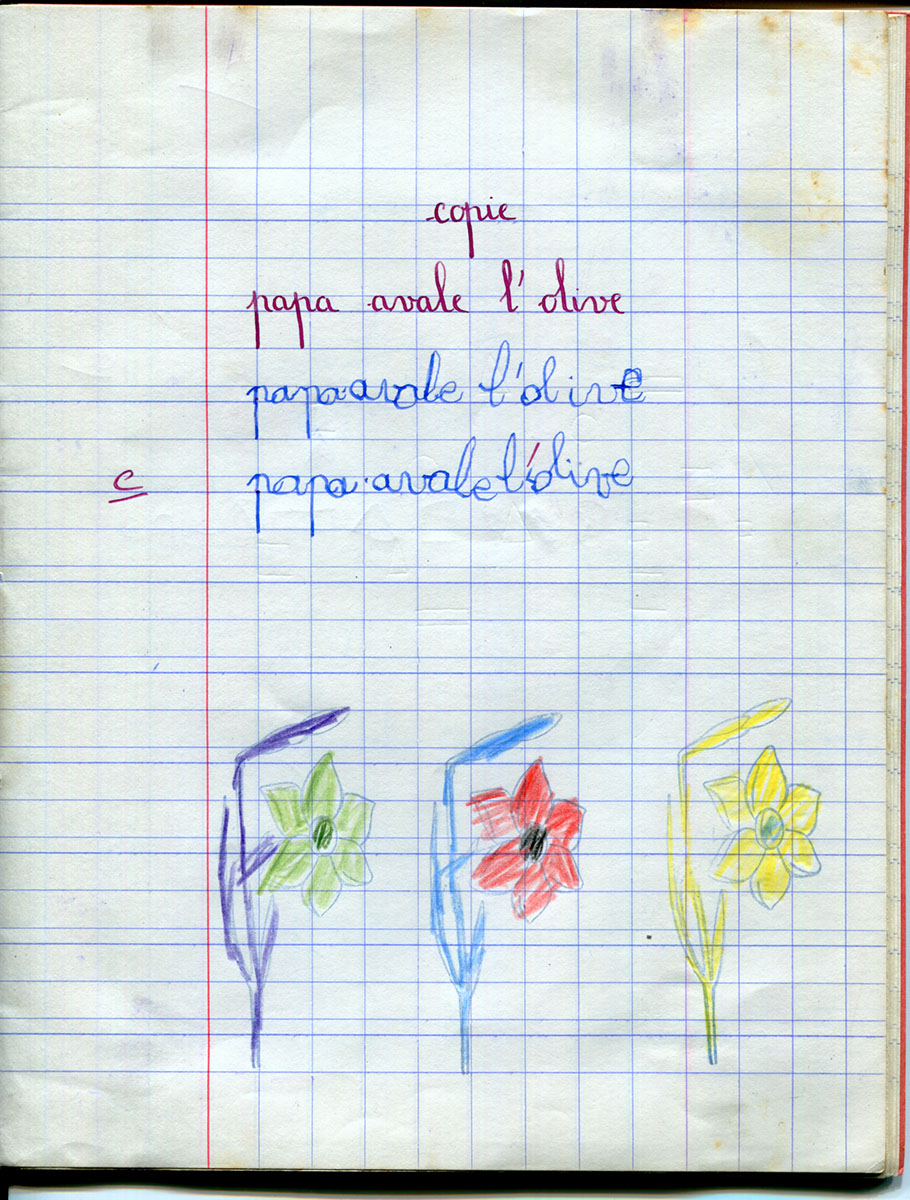 copie
papa avale l'olive
papa avale l'olive
c papa avale l'olive